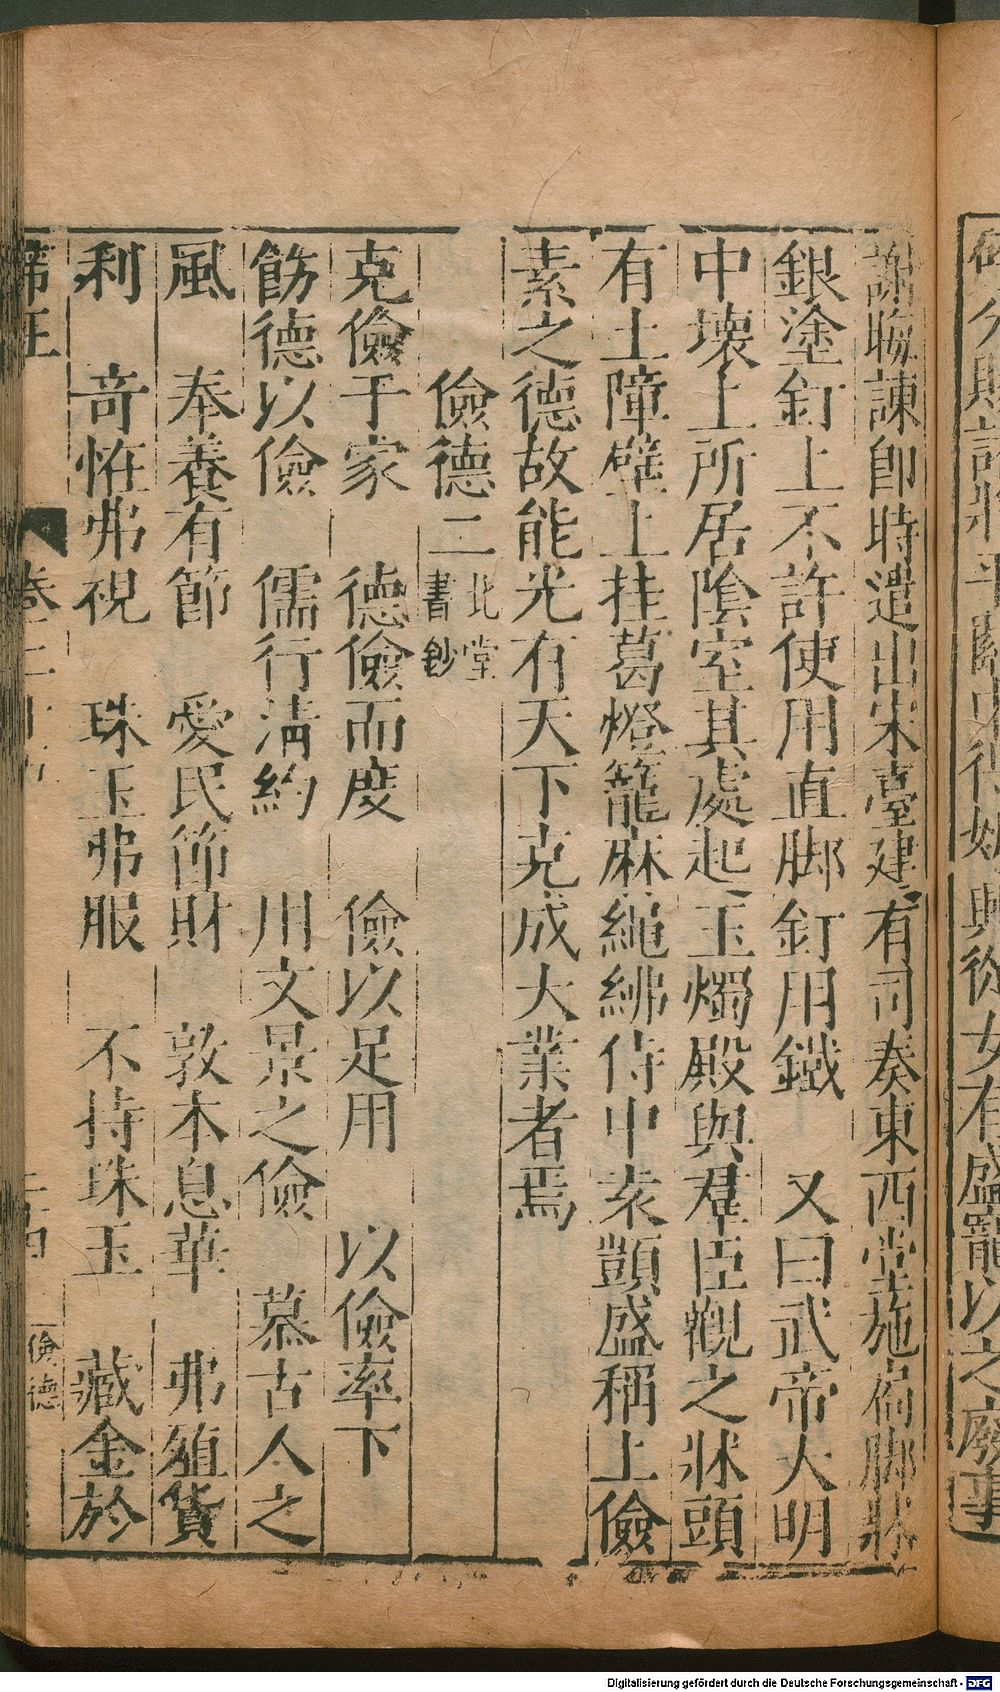 謝晦諫即時遣出宋臺建有司奏東西堂施局脚牀
銀塗釘上不許使用直脚釘用鐵　又曰武帝大明
中壞上所居陰室其處起玉燭殿與羣臣觀之牀頭
有土障壁上挂葛燈籠麻繩紼侍中袁顗盛稱上儉
素之德故能光有天下克成大業者焉
儉德二 北堂書鈔
克儉于家　德儉而度　儉以足用　以儉率下
飭德以儉　儒行清約　用文景之儉　慕古人之
風　奉養有節　愛民節財　敦本息華　弗殖貨
利　奇恠弗視　珠玉弗服　不待珠玉　藏金於
帝王
儉德
Digitalisierung gefördert durch die Deutsche Forschungsgemeinschaft - DFG